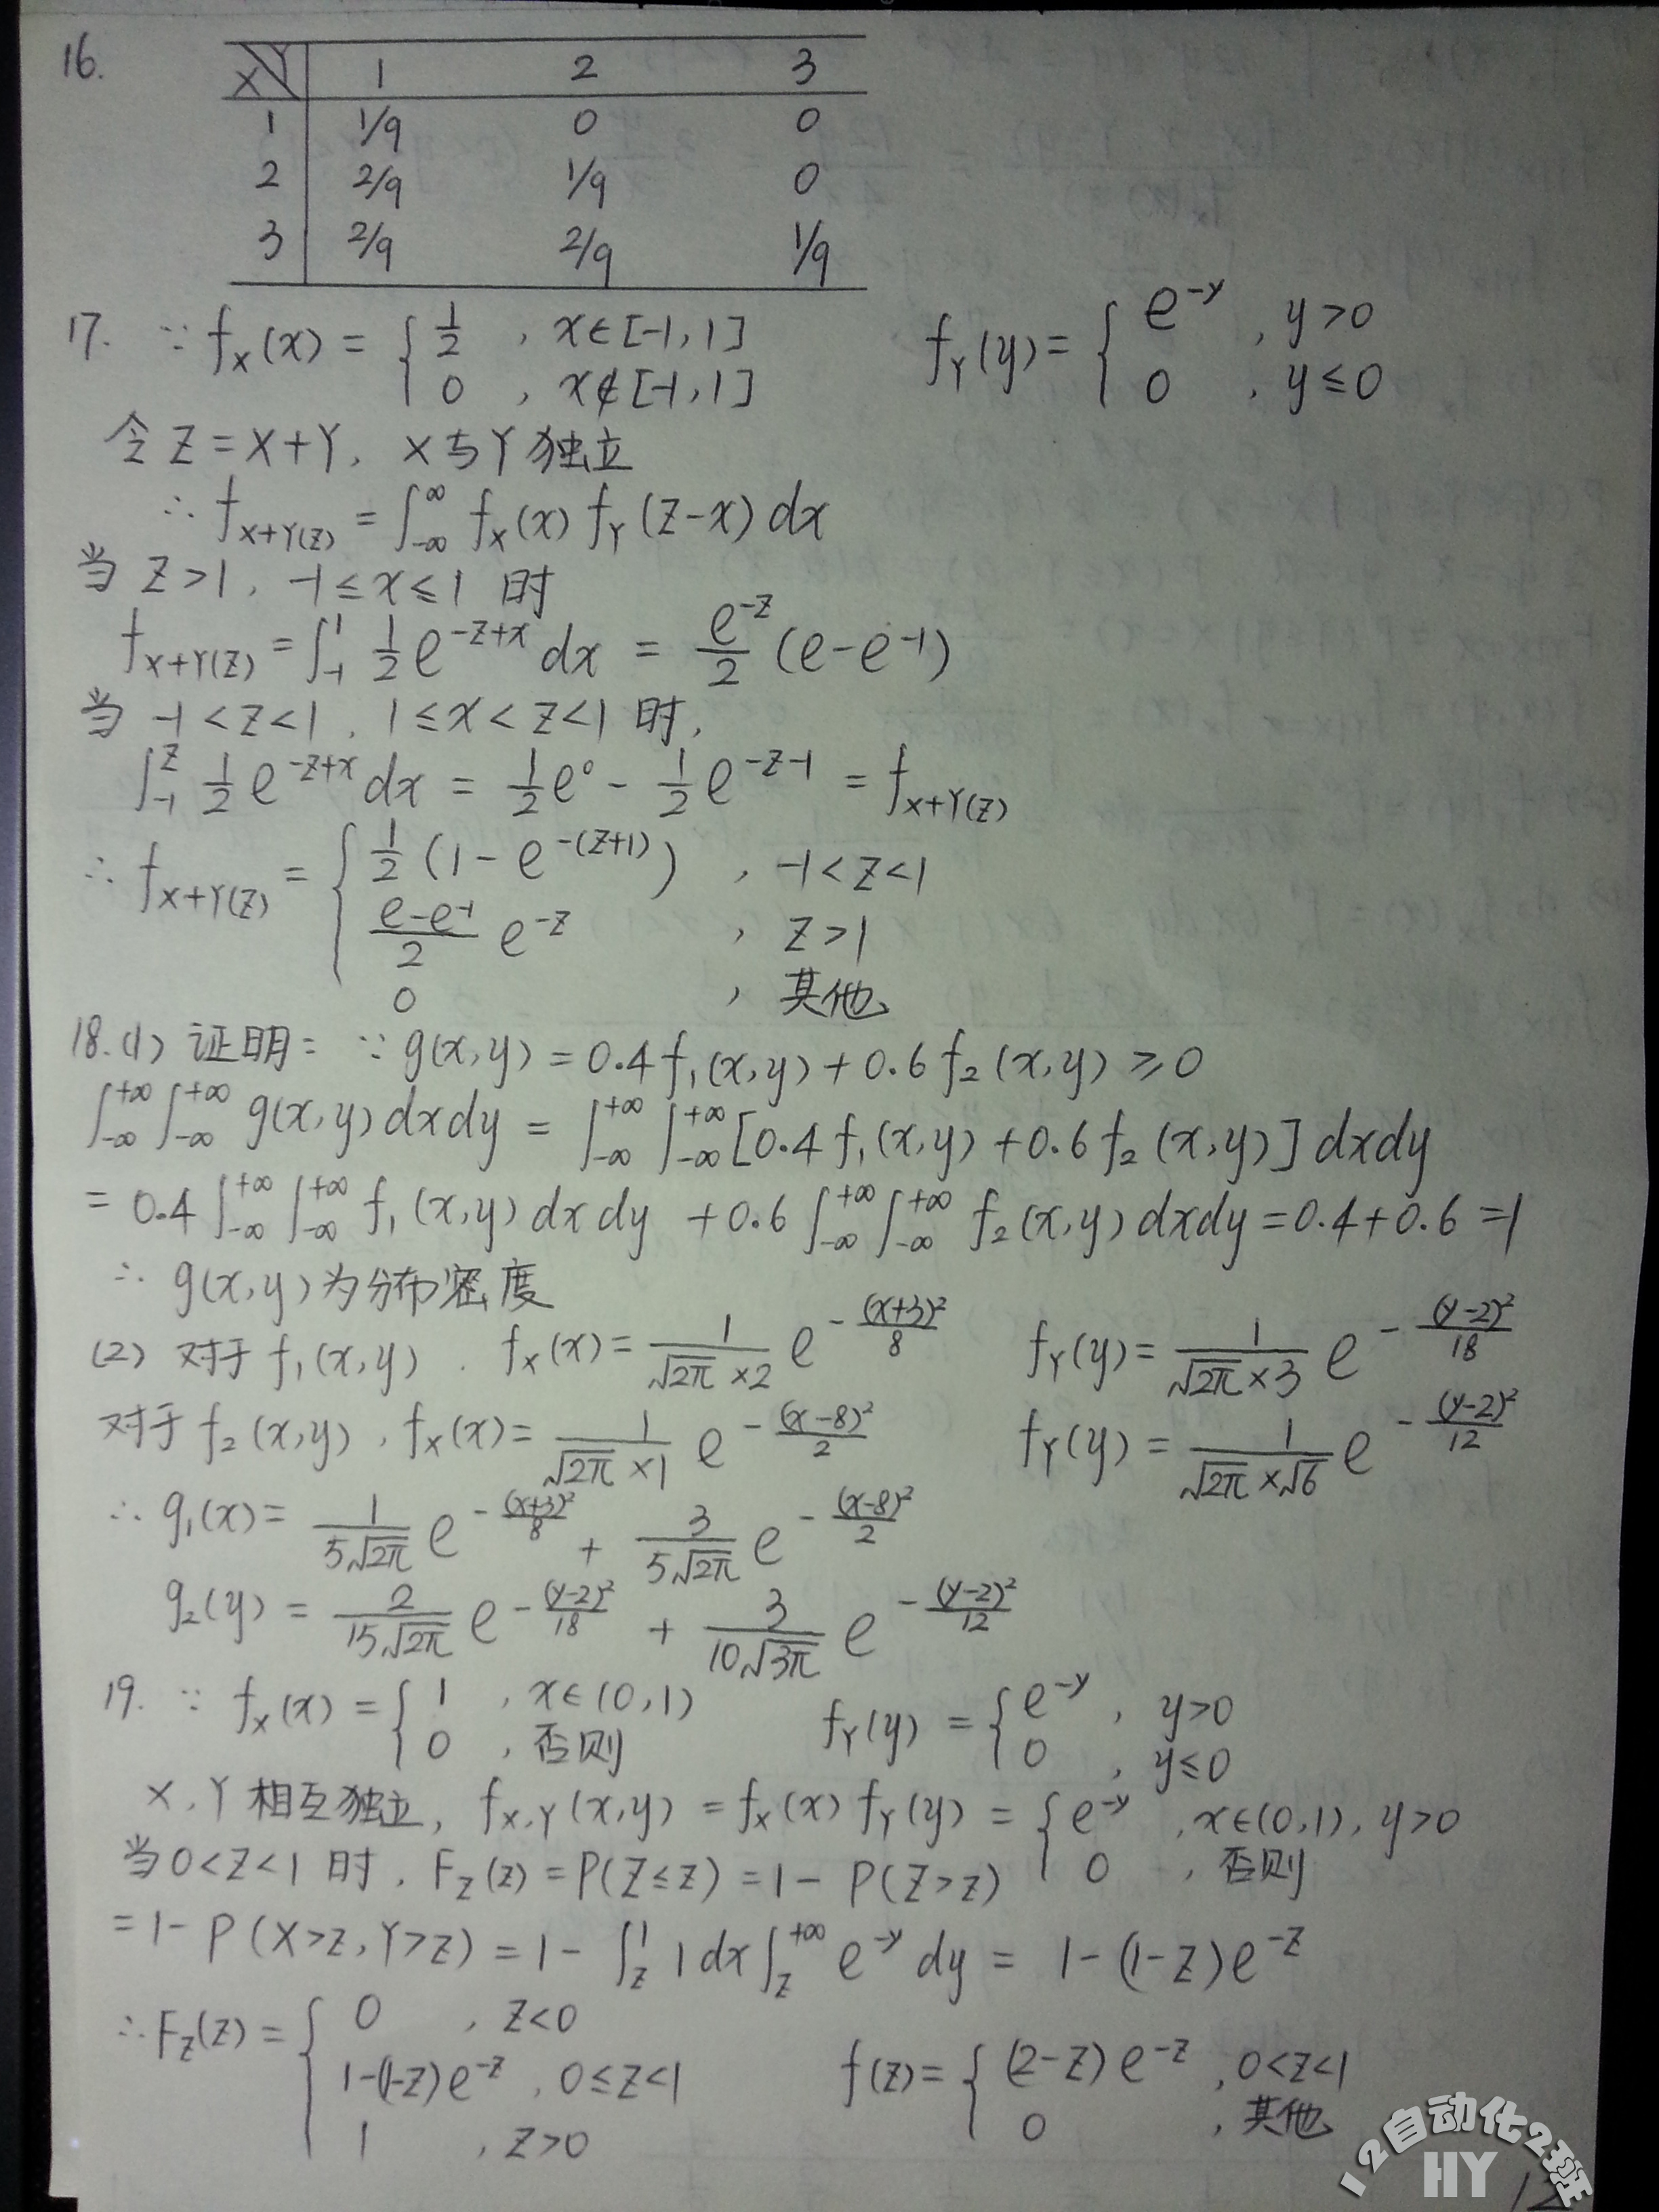 16.
X\Y 1 2 3
1 1/9 0 0
2 2/9 1/9 0
3 2/9 2/9 1/9
17. ∵ f_X(x) = { 1/2 , x∈[-1,1] ; 0 , x∉[-1,1] f_Y(y) = { e^{-y} , y>0 ; 0 , y≤0
令 Z=X+Y, X与Y独立
∴ f_{X+Y(Z)} = ∫_{-∞}^{∞} f_X(x) f_Y(z-x) dx
当 Z>1, -1≤x≤1 时
f_{X+Y(Z)} = ∫_{-1}^{1} 1/2 e^{-z+x} dx = e^{-z}/2 (e-e^{-1})
当 -1<z<1, 1≤x<z<1 时,
∫_{-1}^{z} 1/2 e^{-z+x} dx = 1/2 e^0 - 1/2 e^{-z-1} = f_{X+Y(Z)}
∴ f_{X+Y(Z)} = { 1/2 (1-e^{-(z+1)}) , -1<z<1
(e-e^{-1})/2 e^{-z} , z>1
0 , 其他
18.(1) 证明: ∵ g(x,y) = 0.4f_1(x,y)+0.6f_2(x,y) ≥ 0
∫_{-∞}^{+∞}∫_{-∞}^{+∞} g(x,y)dxdy = ∫_{-∞}^{+∞}∫_{-∞}^{+∞} [0.4f_1(x,y)+0.6f_2(x,y)]dxdy
= 0.4∫_{-∞}^{+∞}∫_{-∞}^{+∞} f_1(x,y)dxdy +0.6∫_{-∞}^{+∞}∫_{-∞}^{+∞} f_2(x,y)dxdy=0.4+0.6=1
∴ g(x,y)为分布密度
(2) 对于 f_1(x,y) . f_X(x)= 1/(√2π ×2) e^{-(x+3)²/8} f_Y(y)= 1/(√2π×3) e^{-(y-2)²/18}
对于 f_2(x,y) , f_X(x)= 1/(√2π ×1) e^{-(x-8)²/2} f_Y(y) = 1/(√2π×√6) e^{-(y-2)²/12}
∴ g_1(x)= 1/(5√2π) e^{-(x+3)²/8} + 3/(5√2π) e^{-(x-8)²/2}
g_2(y) = 2/(15√2π) e^{-(y-2)²/18} + 3/(10√3π) e^{-(y-2)²/12}
19. ∵ f_X(x) = { 1 , x∈(0,1) ; 0 , 否则 f_Y(y) = { e^{-y} , y>0 ; 0 , y≤0
X,Y相互独立, f_{X,Y}(x,y) = f_X(x) f_Y(y) = { e^{-y} , x∈(0,1), y>0 ; 0 , 否则
当0<z<1 时, F_Z(z) = P(Z≤z) = 1- P(Z>z)
= 1- P(X>z,Y>z) = 1- ∫_z^1 1dx∫_z^{+∞} e^{-y} dy = 1-(1-z)e^{-z}
∴ F_Z(z) = { 0 , z<0
1-(1-z)e^{-z} , 0≤z<1
1 , z>0
f(z)= { (2-z)e^{-z} , 0<z<1
0 , 其他
12自动化2班
HY
12